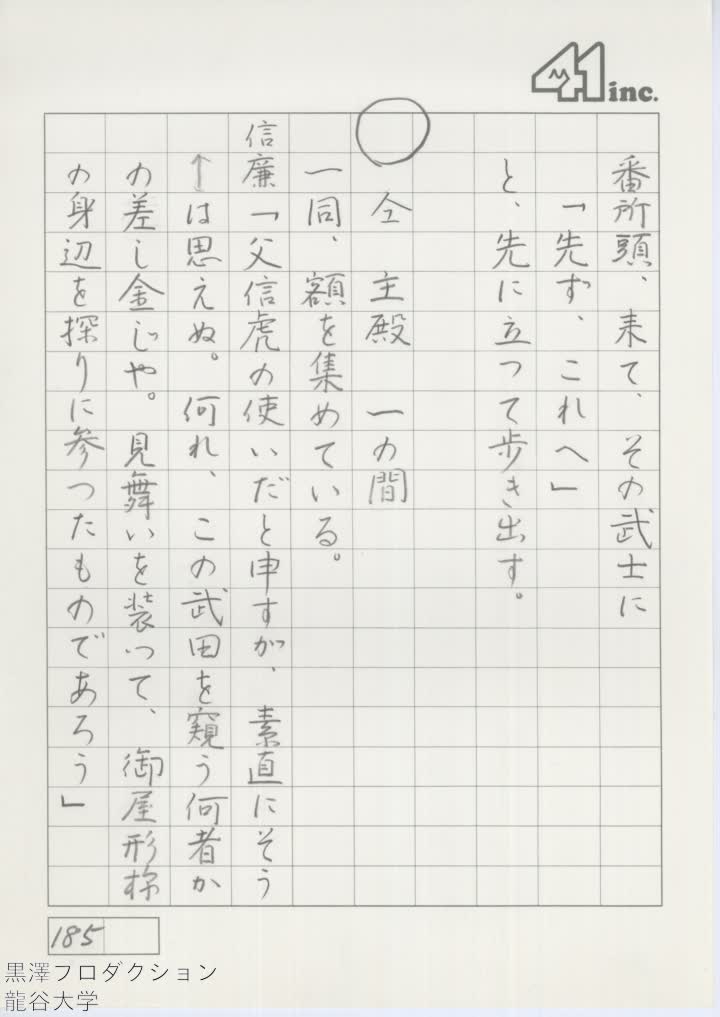 41 inc.
番所頭、来て、その武士に
「先ず、これへ」
と、先に立つて歩き出す。
○ 仝 主殿 一の間
一同、額を集めている。
信廉「父信虎の使いだと申すが、素直にそう
↑は思えぬ。何れ、この武田を窺う何者か
の差し金じや。見舞いを装つて、御屋形様
の身辺を探りに参つたものであろう」
185
黒澤プロダクション
龍谷大学